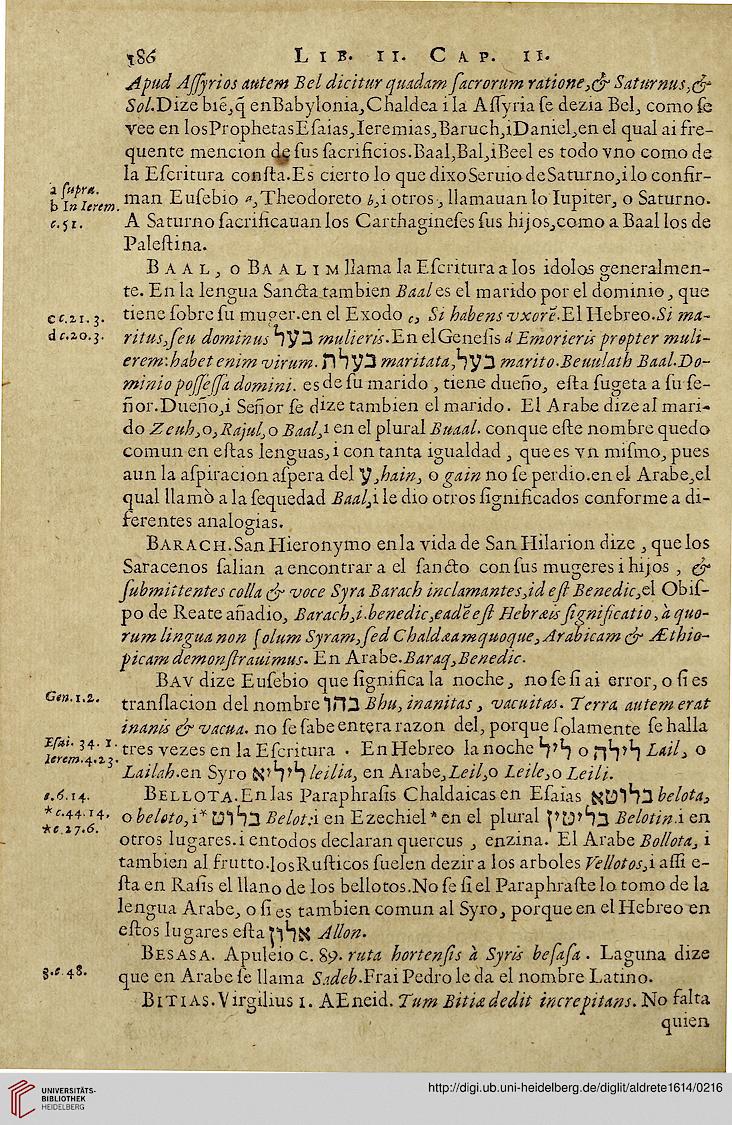 186 LIB. II. CAP. II.
Apud Aſſyrios autem Bel dicitur quadam ſacrorum ratione,& Saturnus,&
Sol.Dize biē,q̄ enBabylonia,Chaldea i la Aſſyria ſe dezia Bel, como ſe
vee en losProphetasEſaias,Ieremias,Baruch,iDaniel,en el qual ai fre-
quente mencion de ſus ſacrificios.Baal,Bal,iBeel es todo vno como de
la Eſcritura conſta.Es cierto lo que dixoSeruio deSaturno,ilo confir-
a ſupra.
man Euſebio a,Theodoreto b,i otros, llamauan lo Iupiter, o Saturno.
b In Ierem.
c.51.
A Saturno ſacrificauan los Carthagineſes ſus hijos,como a Baal los de
Paleſtina.
BAAL, O BAALIM llama la Eſcritura a los idolos generalmen-
te. En la lengua Sancta tambien Baal es el marido por el dominio, que
c c.21.3.
tiene ſobre ſu muger.en el Exodo c, Si habens vxorē.El Hebreo.Si ma-
d c.20.3.
ritus,ſeu dominus בעל mulieris.En elGeneſis d Emorieris propter muli-
erem:habet enim virum. בעלת maritata,בעל marito.Beuulath Baal.Do-
minio poſſeſſa domini. es de ſu marido, tiene dueño, eſta ſugeta a ſu ſe-
ñor.Dueño,i Señor ſe dize tambien el marido. El Arabe dize al mari-
do Zeuh,o,Rajul,o Baal,i en el plural Buaal. conque eſte nombre quedo
comun en eſtas lenguas,i con tanta igualdad, que es vn miſmo, pues
aun la aſpiracion aſpera del ע,hain, o gain no ſe perdio.en el Arabe,el
qual llamò a la ſequedad Baal,i le dio otros ſignificados conforme a di-
ferentes analogias.
BARACH.San Hieronymo en la vida de San Hilarion dize, que los
Saracenos ſalian a encontrar a el ſancto con ſus mugeres i hijos, &
ſubmittentes colla & voce Syra Barach inclamantes,id eſt Benedic,el Obiſ-
po de Reate añadio, Barach,i.benedic,eadē eſt Hebræis ſignificatio, à quo-
rum lingua non ſolum Syram,ſed Chaldæamquoque,Arabicam & Æthio-
picam demonſtrauimus. En Arabe.Baraq,Benedic.
BAV dize Euſebio que ſignifica la noche, no ſe ſi ai error, o ſi es
Gen.1.2.
tranſlacion del nombre בהו Bhu, inanitas, vacuitas. Terra autem erat
inanis & vacua. no ſe ſabe entera razon del, porque ſolamente ſe halla
Eſai. 34. 1.
tres vezes en la Eſcritura. En Hebreo la noche ליל o לילה Lail, o
Ierem.4.23.
Lailah.en Syro ליליא leilia, en Arabe,Leil,o Leile,o Leili.
a.6.14.
BELLOTA.En las Paraphraſis Chaldaicas en Eſaias בלוטא belota,
*c.44.14.
o beloto, i* בלוט Belot:i en Ezechiel * en el plural בלוטין Belotin.i en
*c.27.6.
otros lugares.i entodos declaran quercus, enzina. El Arabe Bollota, i
tambien al frutto.losRuſticos ſuelen dezir a los arboles Vellotos,i aſſi e-
ſta en Raſis el llano de los bellotos.No ſe ſi el Paraphraſte lo tomo de la
lengua Arabe, o ſi es tambien comun al Syro, porque en el Hebreo en
eſtos lugares eſta אלון Allon.
BESASA. Apuleio c. 89. ruta hortenſis à Syris beſaſa. Laguna dize
3.c.48.
que en Arabe ſe llama Sadeb.Frai Pedro le da el nombre Latino.
BITIAS.Virgilius 1. AEneid. Tum Bitiæ dedit increpitans. No falta
quien
UNIVERSITÄTS-
BIBLIOTHEK
HEIDELBERG
http://digi.ub.uni-heidelberg.de/diglit/aldrete1614/0216